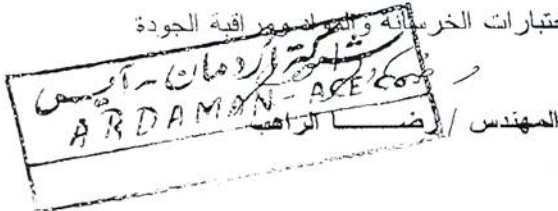 ختبارات الخرسانة والمواد ومراقبة الجودة
شركة اردمان - آيس
ARDAMAN - ACE
المهندس / رضـــا الراهب